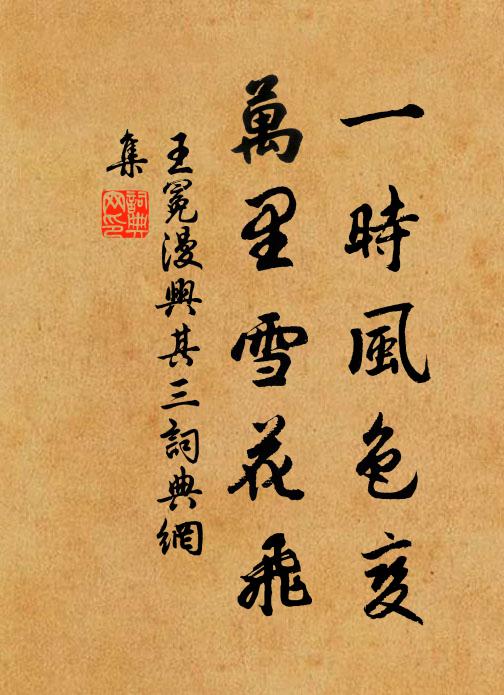 一時風色变
萬里雪花飛
王冕漫興其三詞典網
集
詞典
网印